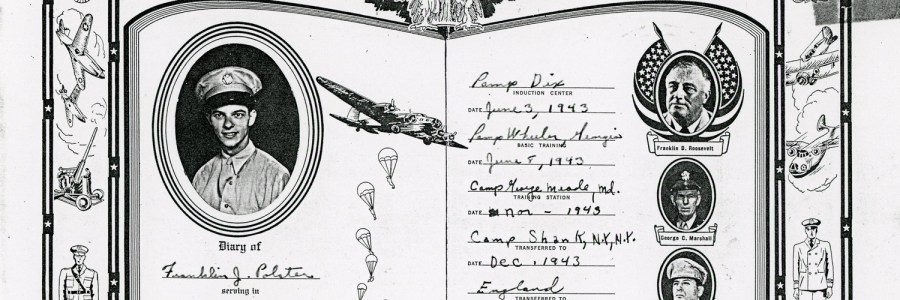 Diary of
Franklin J. Polster
serving in
Camp Dix
INDUCTION CENTER
DATE June 3, 1943
Camp Wheeler Georgia
BASIC TRAINING
DATE June 5, 1943
Camp George Meade, Md.
TRAINING STATION
DATE Nov - 1943
Camp Shank, N.Y, N.Y.
TRANSFERRED TO
DATE Dec. 1943
England
TRANSFERRED TO
Franklin D. Roosevelt
George C. Marshall